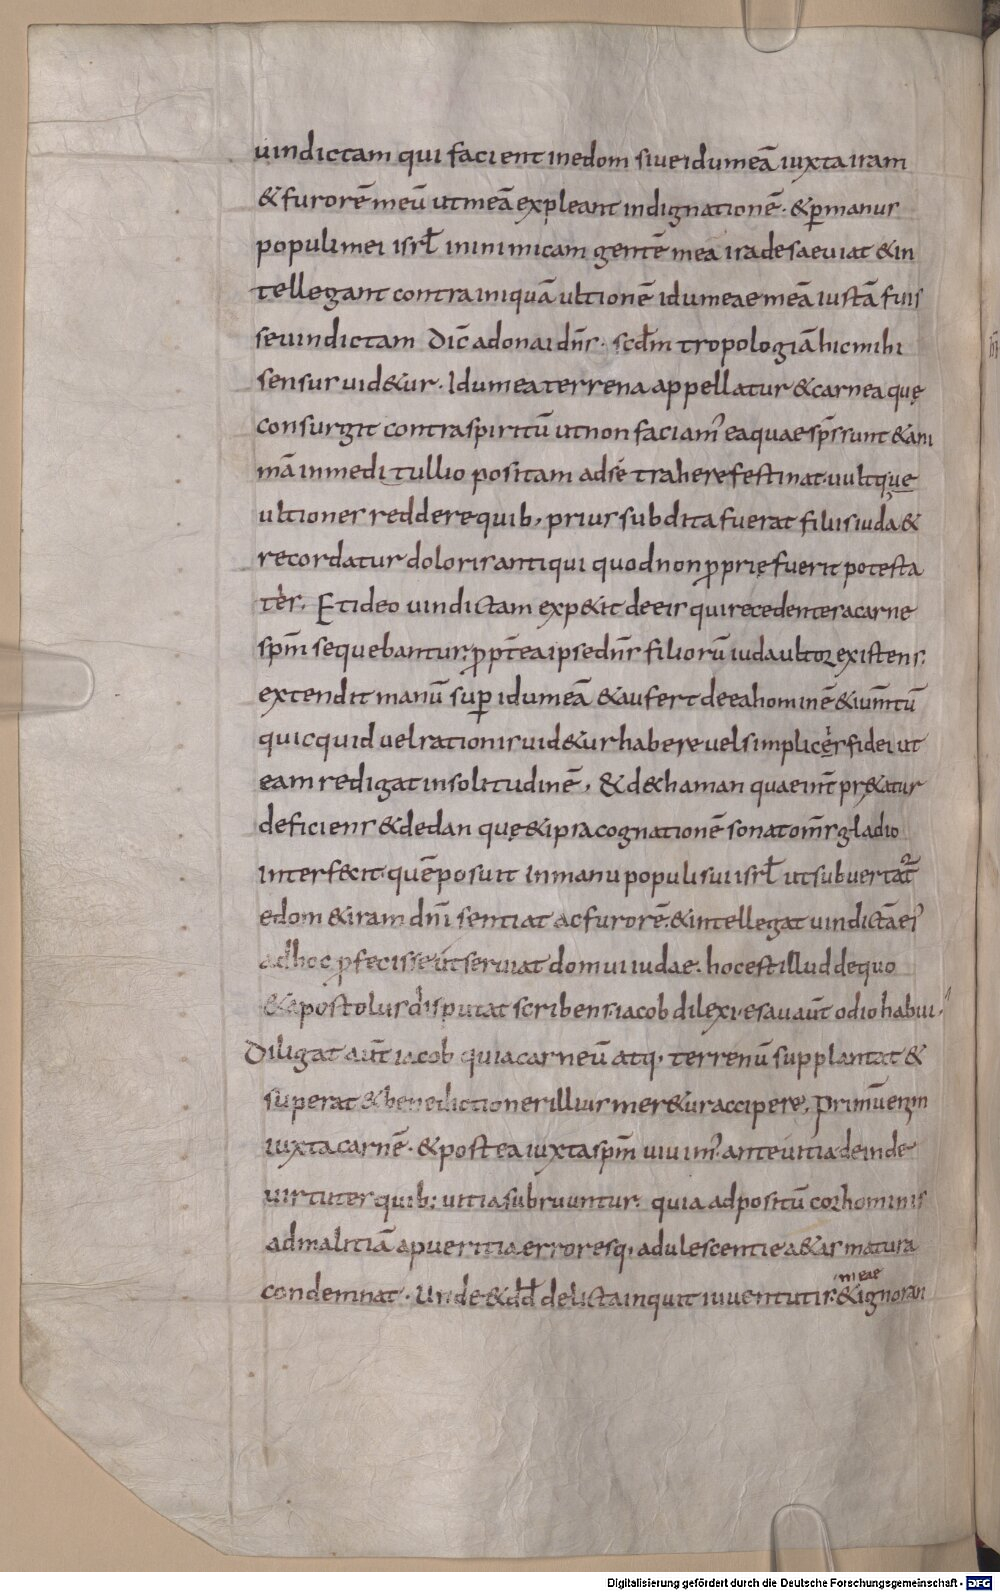 uindictam qui facient inedom siue idumeā iuxta iram
& furorē meū ut meā expleant indignationē. & p̲ manus
populi mei isrł in inimicam gentē mea ira desaeuiat & in
tellegant contra iniquā ultionē idumeae meā iustā fuis
se uindictam Dic̄ adonai dn̄s. scd̄m tropologiā hic mihi
sensus uid&ur. Idumea terrena appellatur & carnea quę
consurgit contra spiritū ut non faciam' ea quae sp̄s sunt & ani
mā in meditullio positam ad se trahere festinat. uultque
ultiones reddere quib, prius subdita fuerat filiis iuda &
recordatur doloris antiqui quod non ꝓprię fuerit potesta
tes. Et ideo uindictam exp&it de eis qui recedentes a carne
sp̄m sequebantur. ꝓpt̄ea ipse dn̄s filiorū iuda ultor existens.
extendit manū sup̲ idumeā & aufert de ea hominē & ium̄tū
quicquid uel rationis uid&ur habere uel simplices fidei ut
eam redigat in solitudinē, & d& haman quae int̄ pr&atur
deficiens & dedan quę & ipsa cognationē sonat om̄s gladio
interfecit. quē posuit in manu populi sui isrł ut subuertat̄
edom & iram dn̄i sentiat ac furorē. & intellegat uindictā ei'
ad hoc ꝓfecisse ut seruiat domui iudae. hoc est illud de quo
& apostolus disputat scribens. iacob dilexi. esau aūt odio habui.
Diligat aūt iacob quia carneū atq, terrenū supplantat &
superat & benedictiones illius mer&ur accipere. Primū enim
iuxta carnē. & postea iuxta sp̄m uiuim'. ante uitia deinde
uirtutes quib: uitia subruuntur. quia adpositū cor hominis
ad malitiā a pueritia erroresq, adulescentie a&as matura
condemnat. Unde & dd̄ delicta inquit iuuentutis meae & ignoran
Digitalisierung gefördert durch die Deutsche Forschungsgemeinschaft - DFG